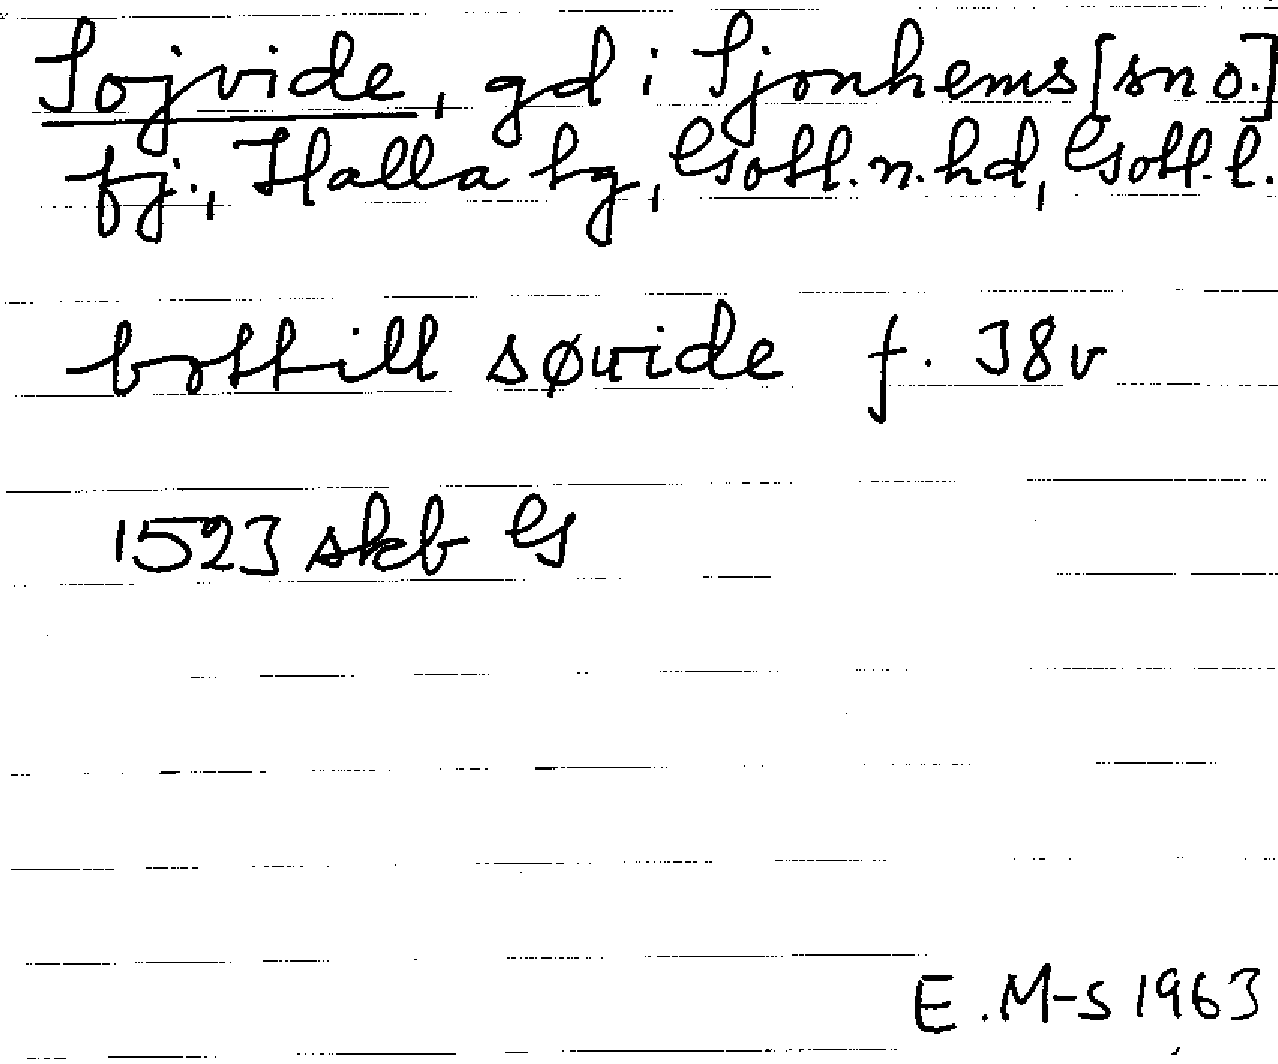 Sojvide, gd i Sjonhems [sn o.]
fj., Halla tg, Gotl. n. hd, Gotl. l.
bottill søuide f. 38v
1523 skb G
E. M-s 1963